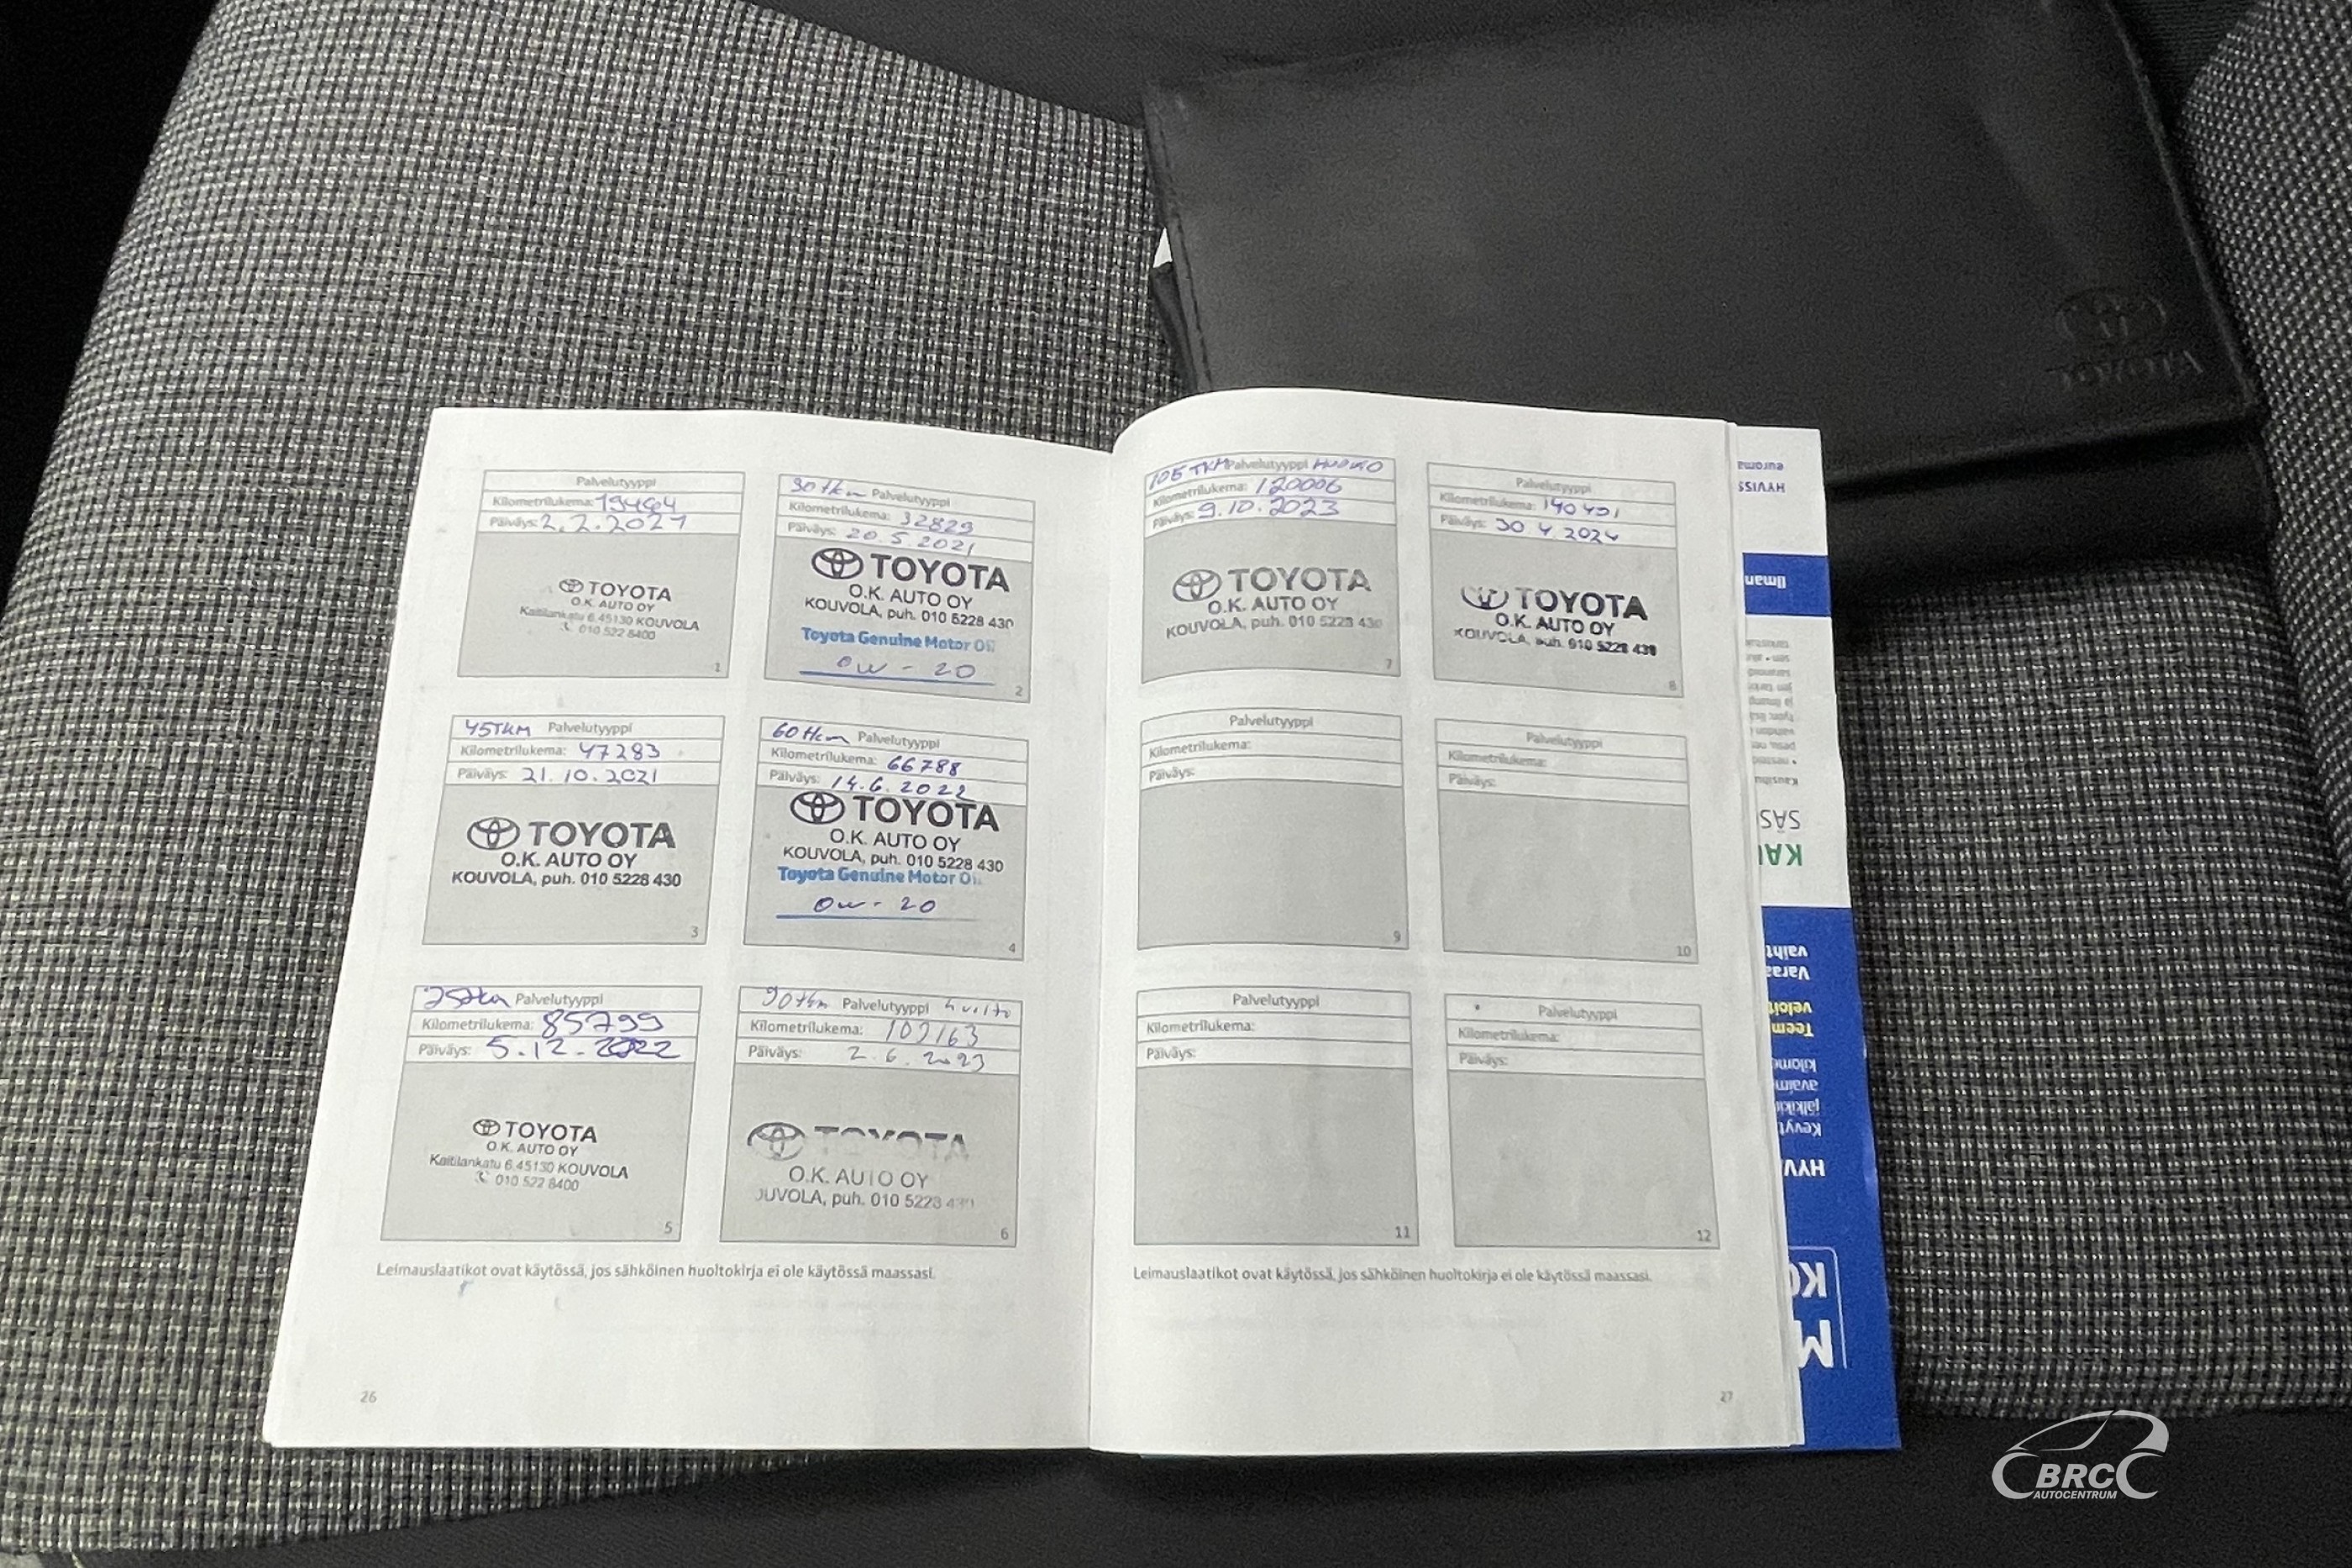 Palvelutyyppi
Kilometrilukema: 19464
Päiväys: 2.2.2021
TOYOTA
O.K. AUTO OY
Kaitilankatu 6,45130 KOUVOLA
010 522 8400
1
30 tkm Palvelutyyppi
Kilometrilukema: 32829
Päiväys: 20.5.2021
TOYOTA
O.K. AUTO OY
KOUVOLA, puh. 010 5228 430
Toyota Genuine Motor Oil
0W - 20
2
45TKM Palvelutyyppi
Kilometrilukema: 47283
Päiväys: 21.10.2021
TOYOTA
O.K. AUTO OY
KOUVOLA, puh. 010 5228 430
3
60tkm Palvelutyyppi
Kilometrilukema: 66788
Päiväys: 14.6.2022
TOYOTA
O.K. AUTO OY
KOUVOLA, puh. 010 5228 430
Toyota Genuine Motor Oi
0w - 20
4
75tkm Palvelutyyppi
Kilometrilukema: 85799
Päiväys: 5.12.2022
TOYOTA
O.K. AUTO OY
Kaitilankatu 6,45130 KOUVOLA
010 522 8400
5
90tkm Palvelutyyppi huolto
Kilometrilukema: 102163
Päiväys: 2.6.2023
TOYOTA
O.K. AUTO OY
OUVOLA, puh. 010 5228 430
6
Leimauslaatikot ovat käytössä, jos sähköinen huoltokirja ei ole käytössä maassasi.
26
105 TKM Palvelutyyppi
Kilometrilukema: 120006
Päiväys: 9.10.2023
TOYOTA
O.K. AUTO OY
KOUVOLA, puh. 010 5228 430
7
Palvelutyyppi
Kilometrilukema: 140401
Päiväys: 30.4.2024
TOYOTA
O.K. AUTO OY
KOUVOLA, puh. 010 5228 430
8
Palvelutyyppi
Kilometrilukema:
Päiväys:
9
Palvelutyyppi
Kilometrilukema:
Päiväys:
10
Palvelutyyppi
Kilometrilukema:
Päiväys:
11
Palvelutyyppi
Kilometrilukema:
Päiväys:
12
Leimauslaatikot ovat käytössä, jos sähköinen huoltokirja ei ole käytössä maassasi.
27
TOYOTA
M
KO
HYV
Kevyt
jälkikä
avaime
kilome
Teem
veloit
Varaa
vaiht
KAU
SÄS
Ilman
HYVISS
euroma
BRC
AUTOCENTRUM